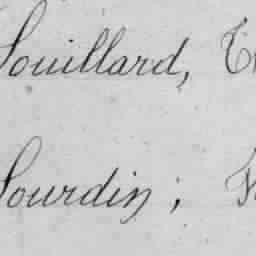 Souillard,
Sourdin;